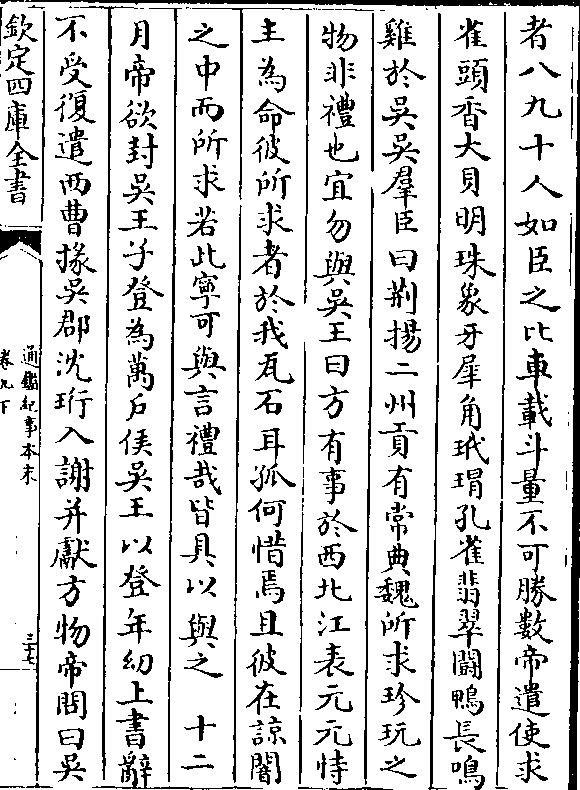 者八九十人如臣之比車載斗量不可勝數帝遣使求
雀頭香大貝明珠象牙犀角玳瑁孔雀翡翠鬬鴨長鳴
雞於吳吳羣臣曰荆揚二州貢有常典魏所求珍玩之
物非禮也宜勿與吳王曰方有事於西北江表元元恃
主為命彼所求者於我瓦石耳孤何惜焉且彼在諒闇
之中而所求若此寧可與言禮哉皆具以與之　十二
月帝欲封吳王子登為萬戶侯吳王以登年幼上書辭
不受復遣西曹掾吳郡沈珩入謝并獻方物帝問曰吳
欽定四庫全書
通鑑紀事本末
卷九下
三十七